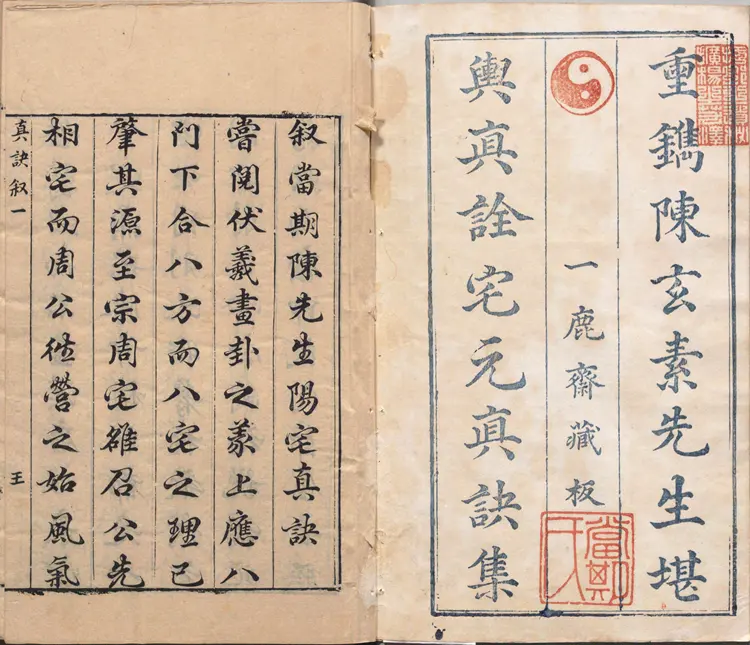 重鐫陳玄素先生堪
一鹿齋藏板
輿真詮宅元真訣集
當期
叙當期陳先生陽宅真訣
嘗閱伏羲畫卦之爻上應八
門下合八方而八宅之理已
肇其源至宗周宅雒召公先
相宅而周公徃營之始風氣
真訣叙 一
王